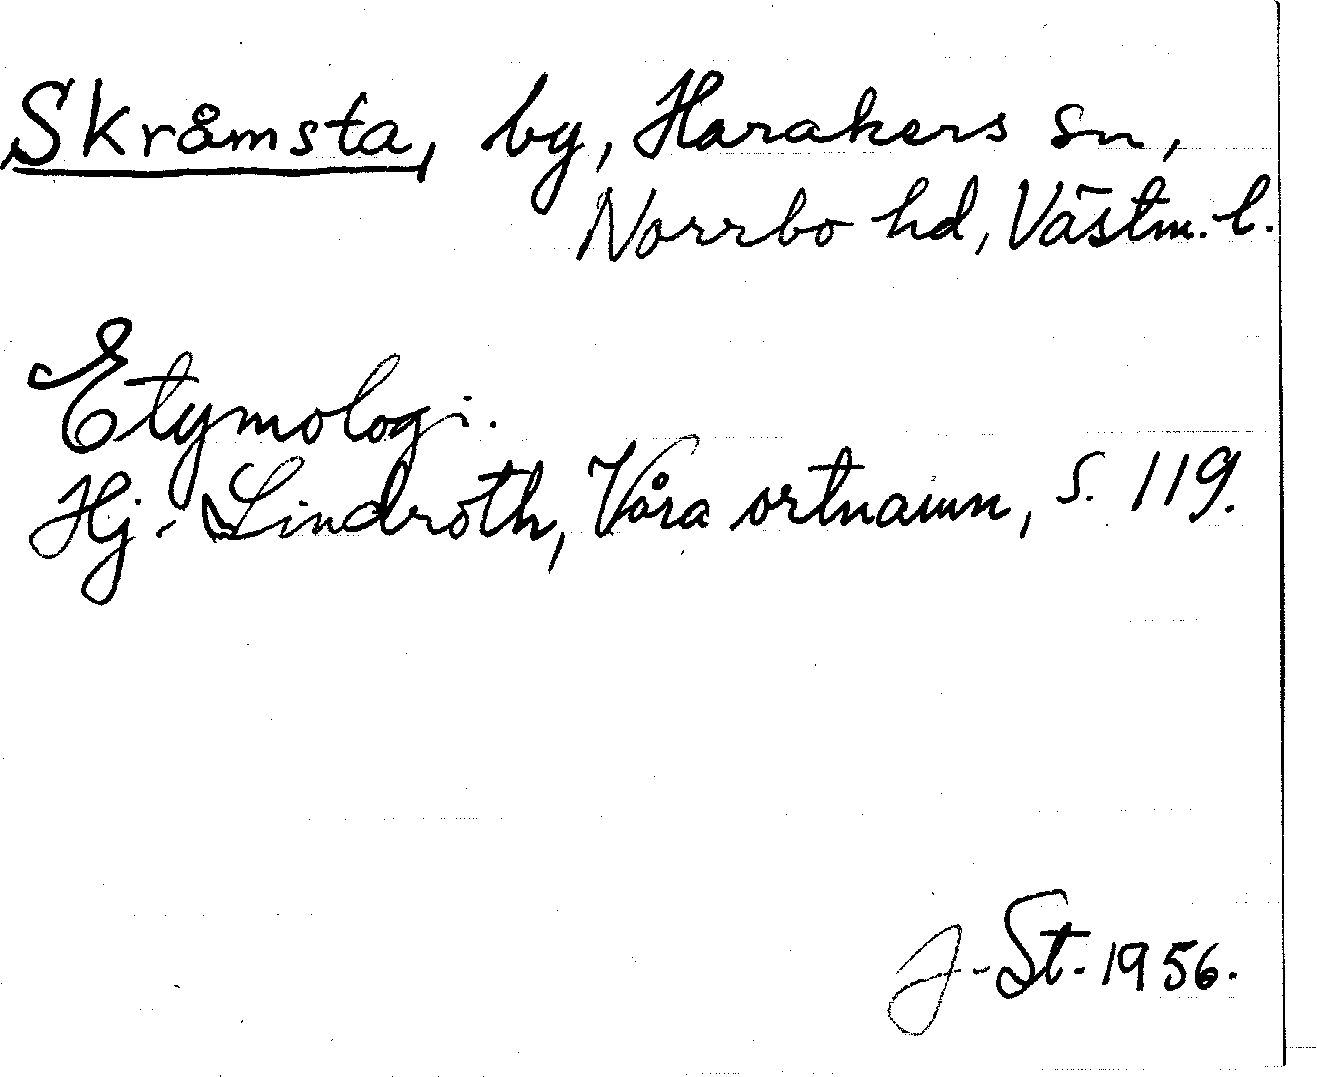 Skråmsta, by, Harakers sn,
Norrbo hd, Västm. l.
Etymologi.
Hj. Lindroth, Våra ortnamn, s. 119.
J. St. 1956.